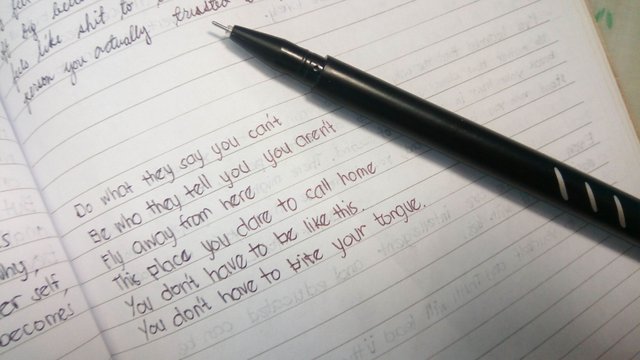 feels like shit to
person you actually trusted
Do what they say you can't
Be who they tell you you aren't
Fly away from here
This place you dare to call home
You don't have to be like this.
You don't have to bite your tongue.
er self,
becomes